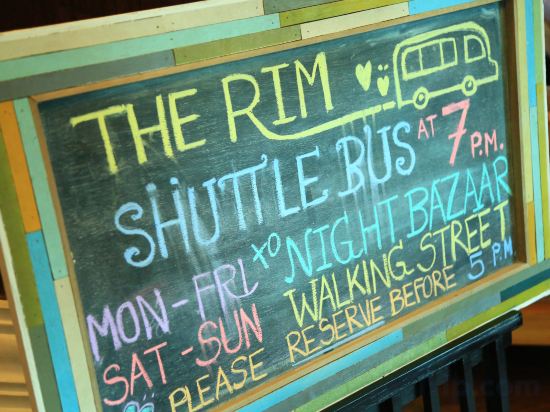 THE RIM
SHUTTLE BUS AT 7 P.M.
TO NIGHT BAZAAR
MON-FRI WALKING STREET
SAT-SUN
PLEASE RESERVE BEFORE 5 P.M